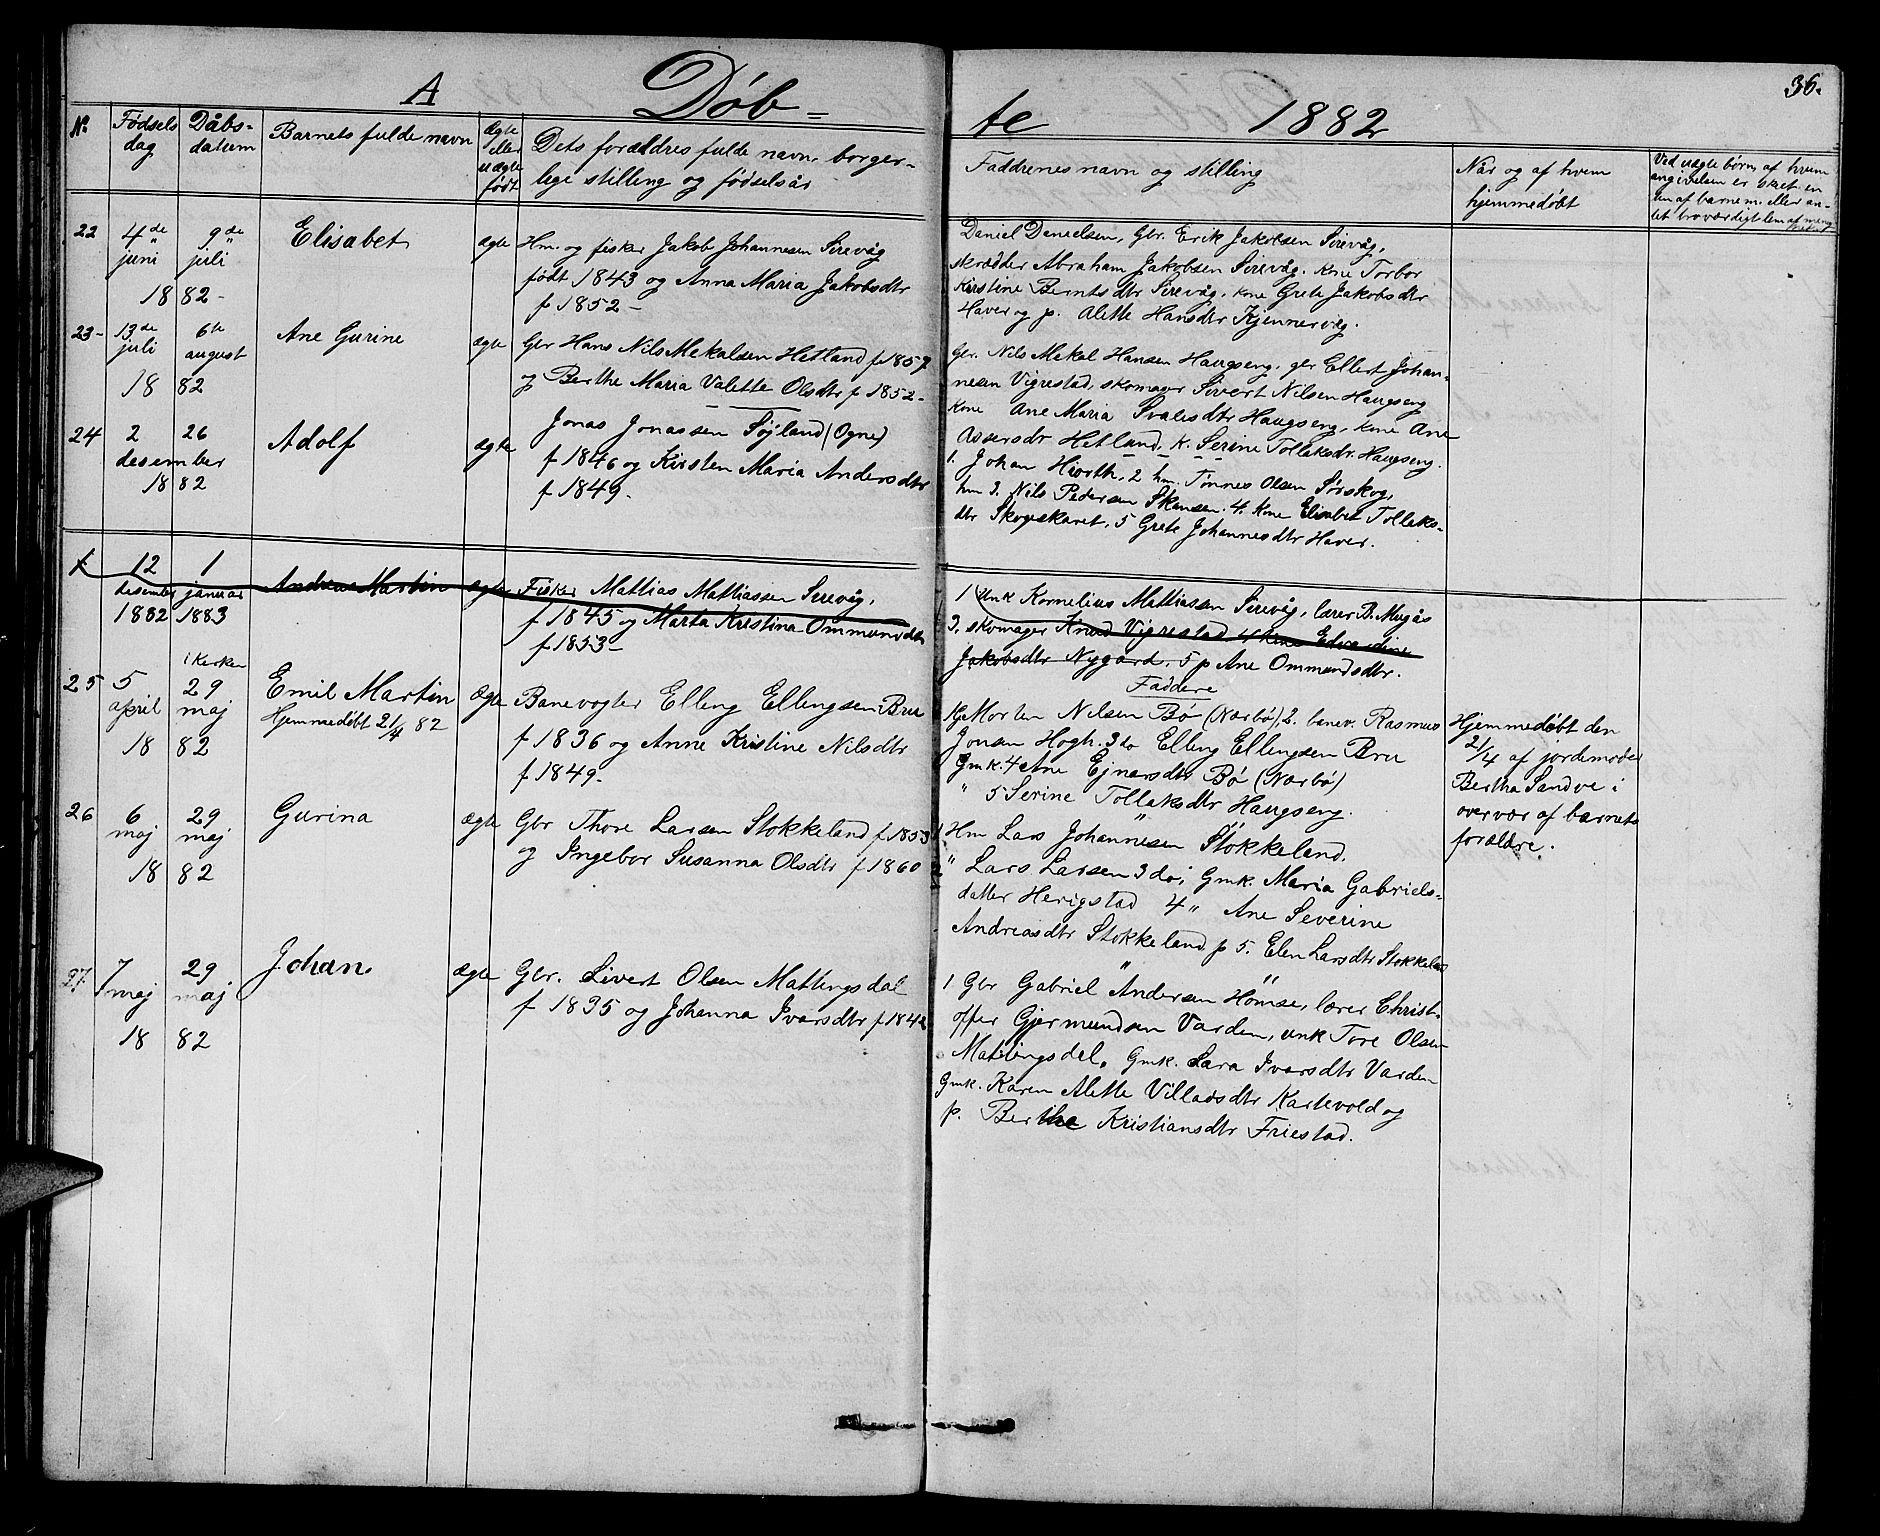 A Døb-
te 1882
36.
No.
Fødsels
dag
Dåbs-
datum
Barnets fulde navn
Ægte
eller
uægte
født
Dets forældres fulde navn, borger-
lige stilling og fødselsår
Faddrenes navn og stilling
Når og af hvem
hjemmedøbt
Ved uægte børn, af hvem
angivelsen er skeet: en
len af barnem. eller an-
let troværdigt lem af menig
22 4de 9de Elisabet ægte Hm. og fisker Jakob Johannesen Sirevåg
juni juli født 1843 og Anna Maria Jakobsdtr
1882- f 1852-
Daniel Danielsen, Gbr. Erik Jakobsen Sirevåg,
skrædder Abraham Jakobsen Sirevåg. kone Torbor
Kirstine Berntsdtr Sirevåg, kone Grete Jakobsdtr
Haver og p. Alette Hansdtr Kjennervåg.
23- 13de 6te Ane Gurine ægte Gbr Hans Nils Mekalsen Hetland f 1857
juli august og Berthe Maria Valette Olsdtr f 1852-
1882
Gbr. Nils Mekal Hansen Haugseng, gbr Ellert Johan-
nesen Vigrestad, skomager Sivert Nilsen Haugseng
kone Ane Maria Svalesdtr Haugseng, kone Ane
Assersdr Hetland. k. Serine Tollaksdr. Haugseng.
24 2 26 Adolf ægte Jonas Jonassen Søyland (Ogne)
desember f 1846 og Kirsten Maria Andersdtr
1882 f 1849-
1. Johan Hiorth, 2 hm. Tønnes Olsen Sørskog,
hm 3. Nils Pedersen Skansen. 4. kone Elisabet Tollaks-
dtr Skogeskaret, 5 Grete Johannesdtr Haver.
1 12 1 Andreas Martin ægte Fisker Mattias Mattiassen Sirevåg,
desember januar f 1845 og Marta Kristina Ommundsdtr
1882 1883 f 1853-
1 Unk Kornelius Mattiassen Sirevåg, lærer B. Mugås
3. skomager Knud Vigrestad 4 kone Edvardine
Jakobsdtr Nygård. 5 p Ane Ommundsdtr.
i Kirken
25 5 29 Emil Martin Ægte Banevogter Elling Ellingsen Bru
april maj Hjemmedøbt 21/4 82 f 1836 og Anne Kristine Nilsdtr
1882 f 1849-
Faddere
1 G Morten Nilsen Bø (Nærbø), 2. banev. Rasmus
Jonsen Høgh. 3 do Elling Ellingsen Bru
Gmk. 4 Ane Ejnarsdtr Bø (Nærbø)
" 5 Serine Tollaksdtr Haugseng.
Hjemmedøbt den
21/4 af jordemoder
Bertha Sandve i
overvær af barnets
forældre.
26 6 29 Gurina ægte Gbr Thore Larsen Stokkeland f 1853
maj maj og Ingebor Susanna Olsdtr f 1860
1882
1 Hm Lars Johannesen Stokkeland.
2 " Lars Larsen 3 do; Gmk. Maria Gabriels-
datter Herigstad 4 " Ane Severine
Andreasdtr Stokkeland p 5. Elen Larsdtr Stokkeland
27 7 29 Johan ægte Gbr. Sivert Olsen Mattingsdal
maj maj f 1835 og Johanna Ivarsdtr f 1842
1882
1 Gbr Gabriel Andersen Homse, lærer Christ-
offer Gjermundsen Varden, unk Tore Olsen
Mattingsdel. Gmk. Sara Ivarsdtr Varden
Gmk. Karen Alette Villadsdtr Kartevold og
p. Berthe Kristiansdtr Friestad.